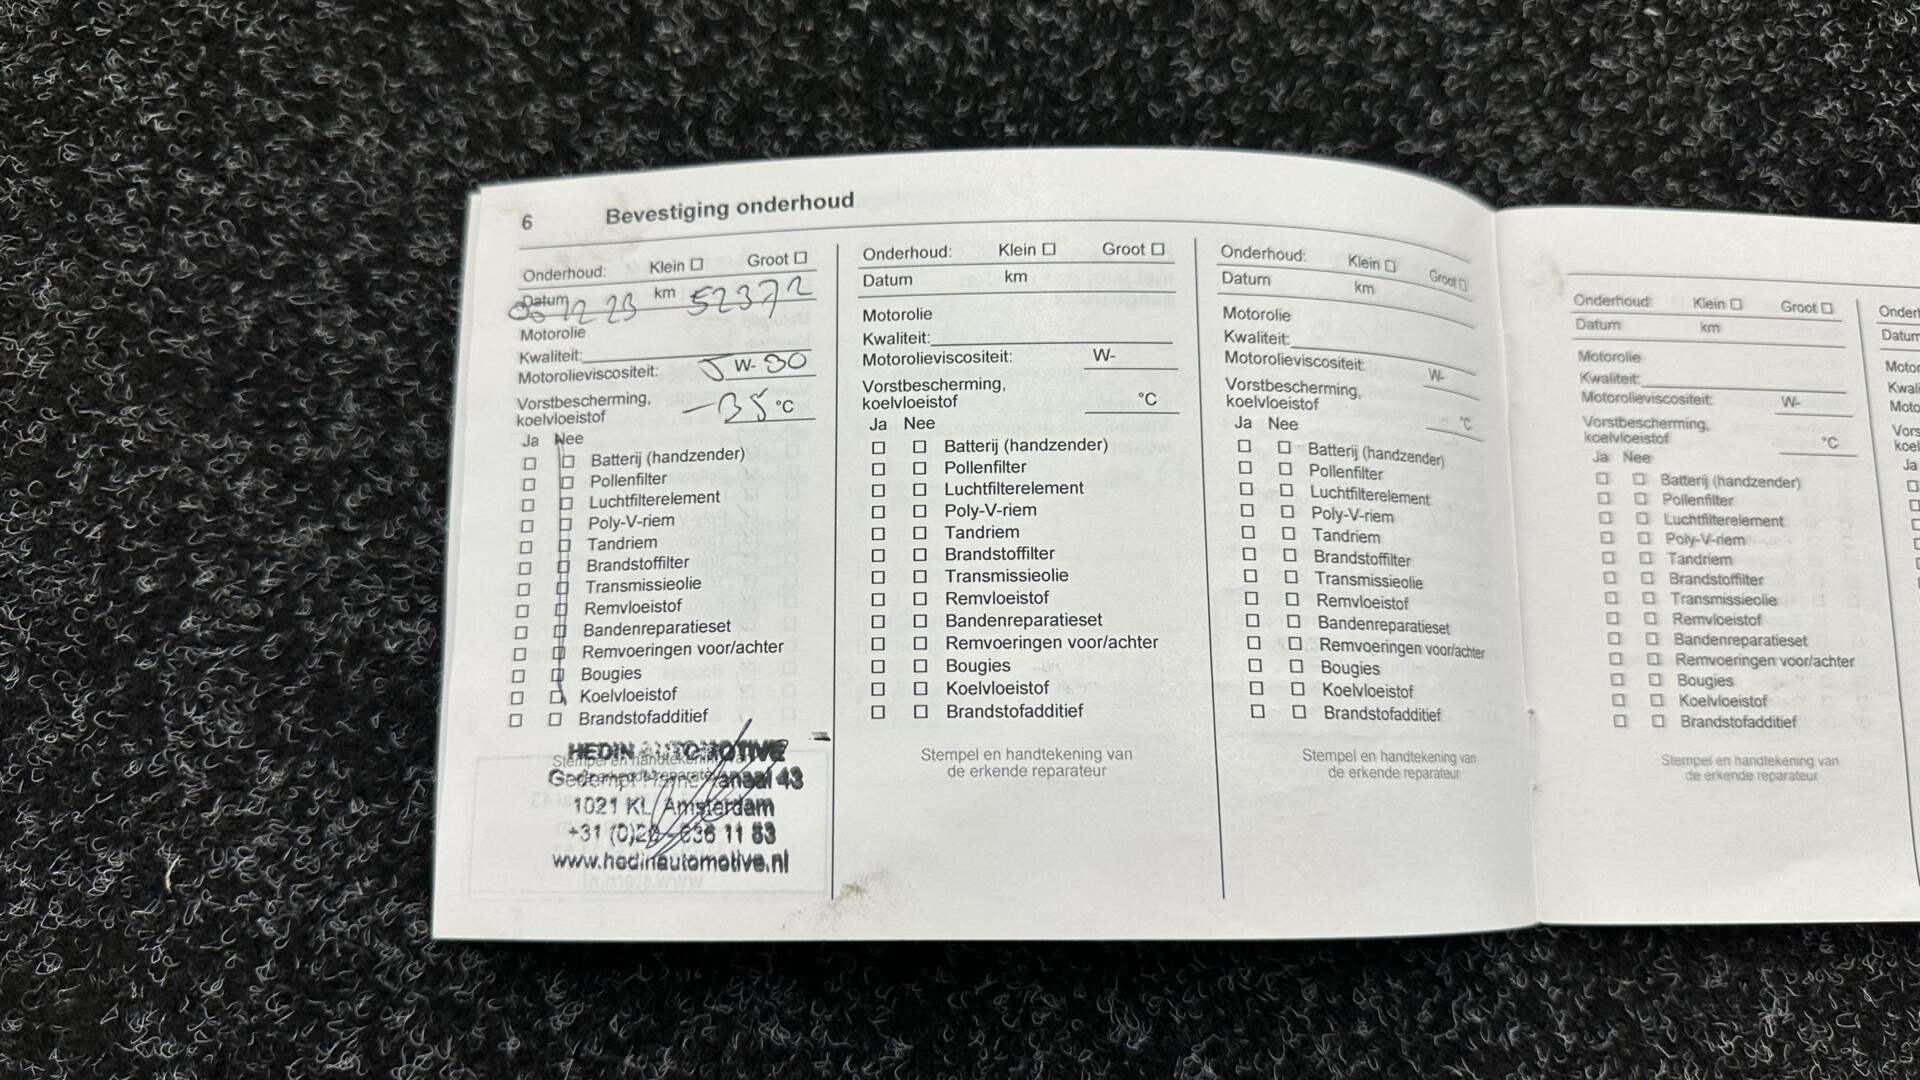 6 Bevestiging onderhoud
Onderhoud: Klein Groot
Datum 12 23 km 52372
Motorolie
Kwaliteit:
Motorolieviscositeit: 5 W- 30
Vorstbescherming,
koelvloeistof -35 °C
Ja Nee
Batterij (handzender)
Pollenfilter
Luchtfilterelement
Poly-V-riem
Tandriem
Brandstoffilter
Transmissieolie
Remvloeistof
Bandenreparatieset
Remvoeringen voor/achter
Bougies
Koelvloeistof
Brandstofadditief
Stempel en handtekening van
HEDIN AUTOMOTIVE
43
1021 KL Amsterdam
+31 (0)20 - 636 11 83
www.hedinautomotive.nl
Onderhoud: Klein Groot
Datum km
Motorolie
Kwaliteit:
Motorolieviscositeit: W-
Vorstbescherming,
koelvloeistof °C
Ja Nee
Batterij (handzender)
Pollenfilter
Luchtfilterelement
Poly-V-riem
Tandriem
Brandstoffilter
Transmissieolie
Remvloeistof
Bandenreparatieset
Remvoeringen voor/achter
Bougies
Koelvloeistof
Brandstofadditief
Stempel en handtekening van
de erkende reparateur
Onderhoud: Klein Groot
Datum km
Motorolie
Kwaliteit:
Motorolieviscositeit: W-
Vorstbescherming,
koelvloeistof °C
Ja Nee
Batterij (handzender)
Pollenfilter
Luchtfilterelement
Poly-V-riem
Tandriem
Brandstoffilter
Transmissieolie
Remvloeistof
Bandenreparatieset
Remvoeringen voor/achter
Bougies
Koelvloeistof
Brandstofadditief
Stempel en handtekening van
de erkende reparateur
Onderhoud: Klein Groot
Datum km
Motorolie
Kwaliteit:
Motorolieviscositeit: W-
Vorstbescherming,
koelvloeistof °C
Ja Nee
Batterij (handzender)
Pollenfilter
Luchtfilterelement
Poly-V-riem
Tandriem
Brandstoffilter
Transmissieolie
Remvloeistof
Bandenreparatieset
Remvoeringen voor/achter
Bougies
Koelvloeistof
Brandstofadditief
Stempel en handtekening van
de erkende reparateur
Onderh
Datum
Motor
Kwali
Moto
Vors
koel
Ja